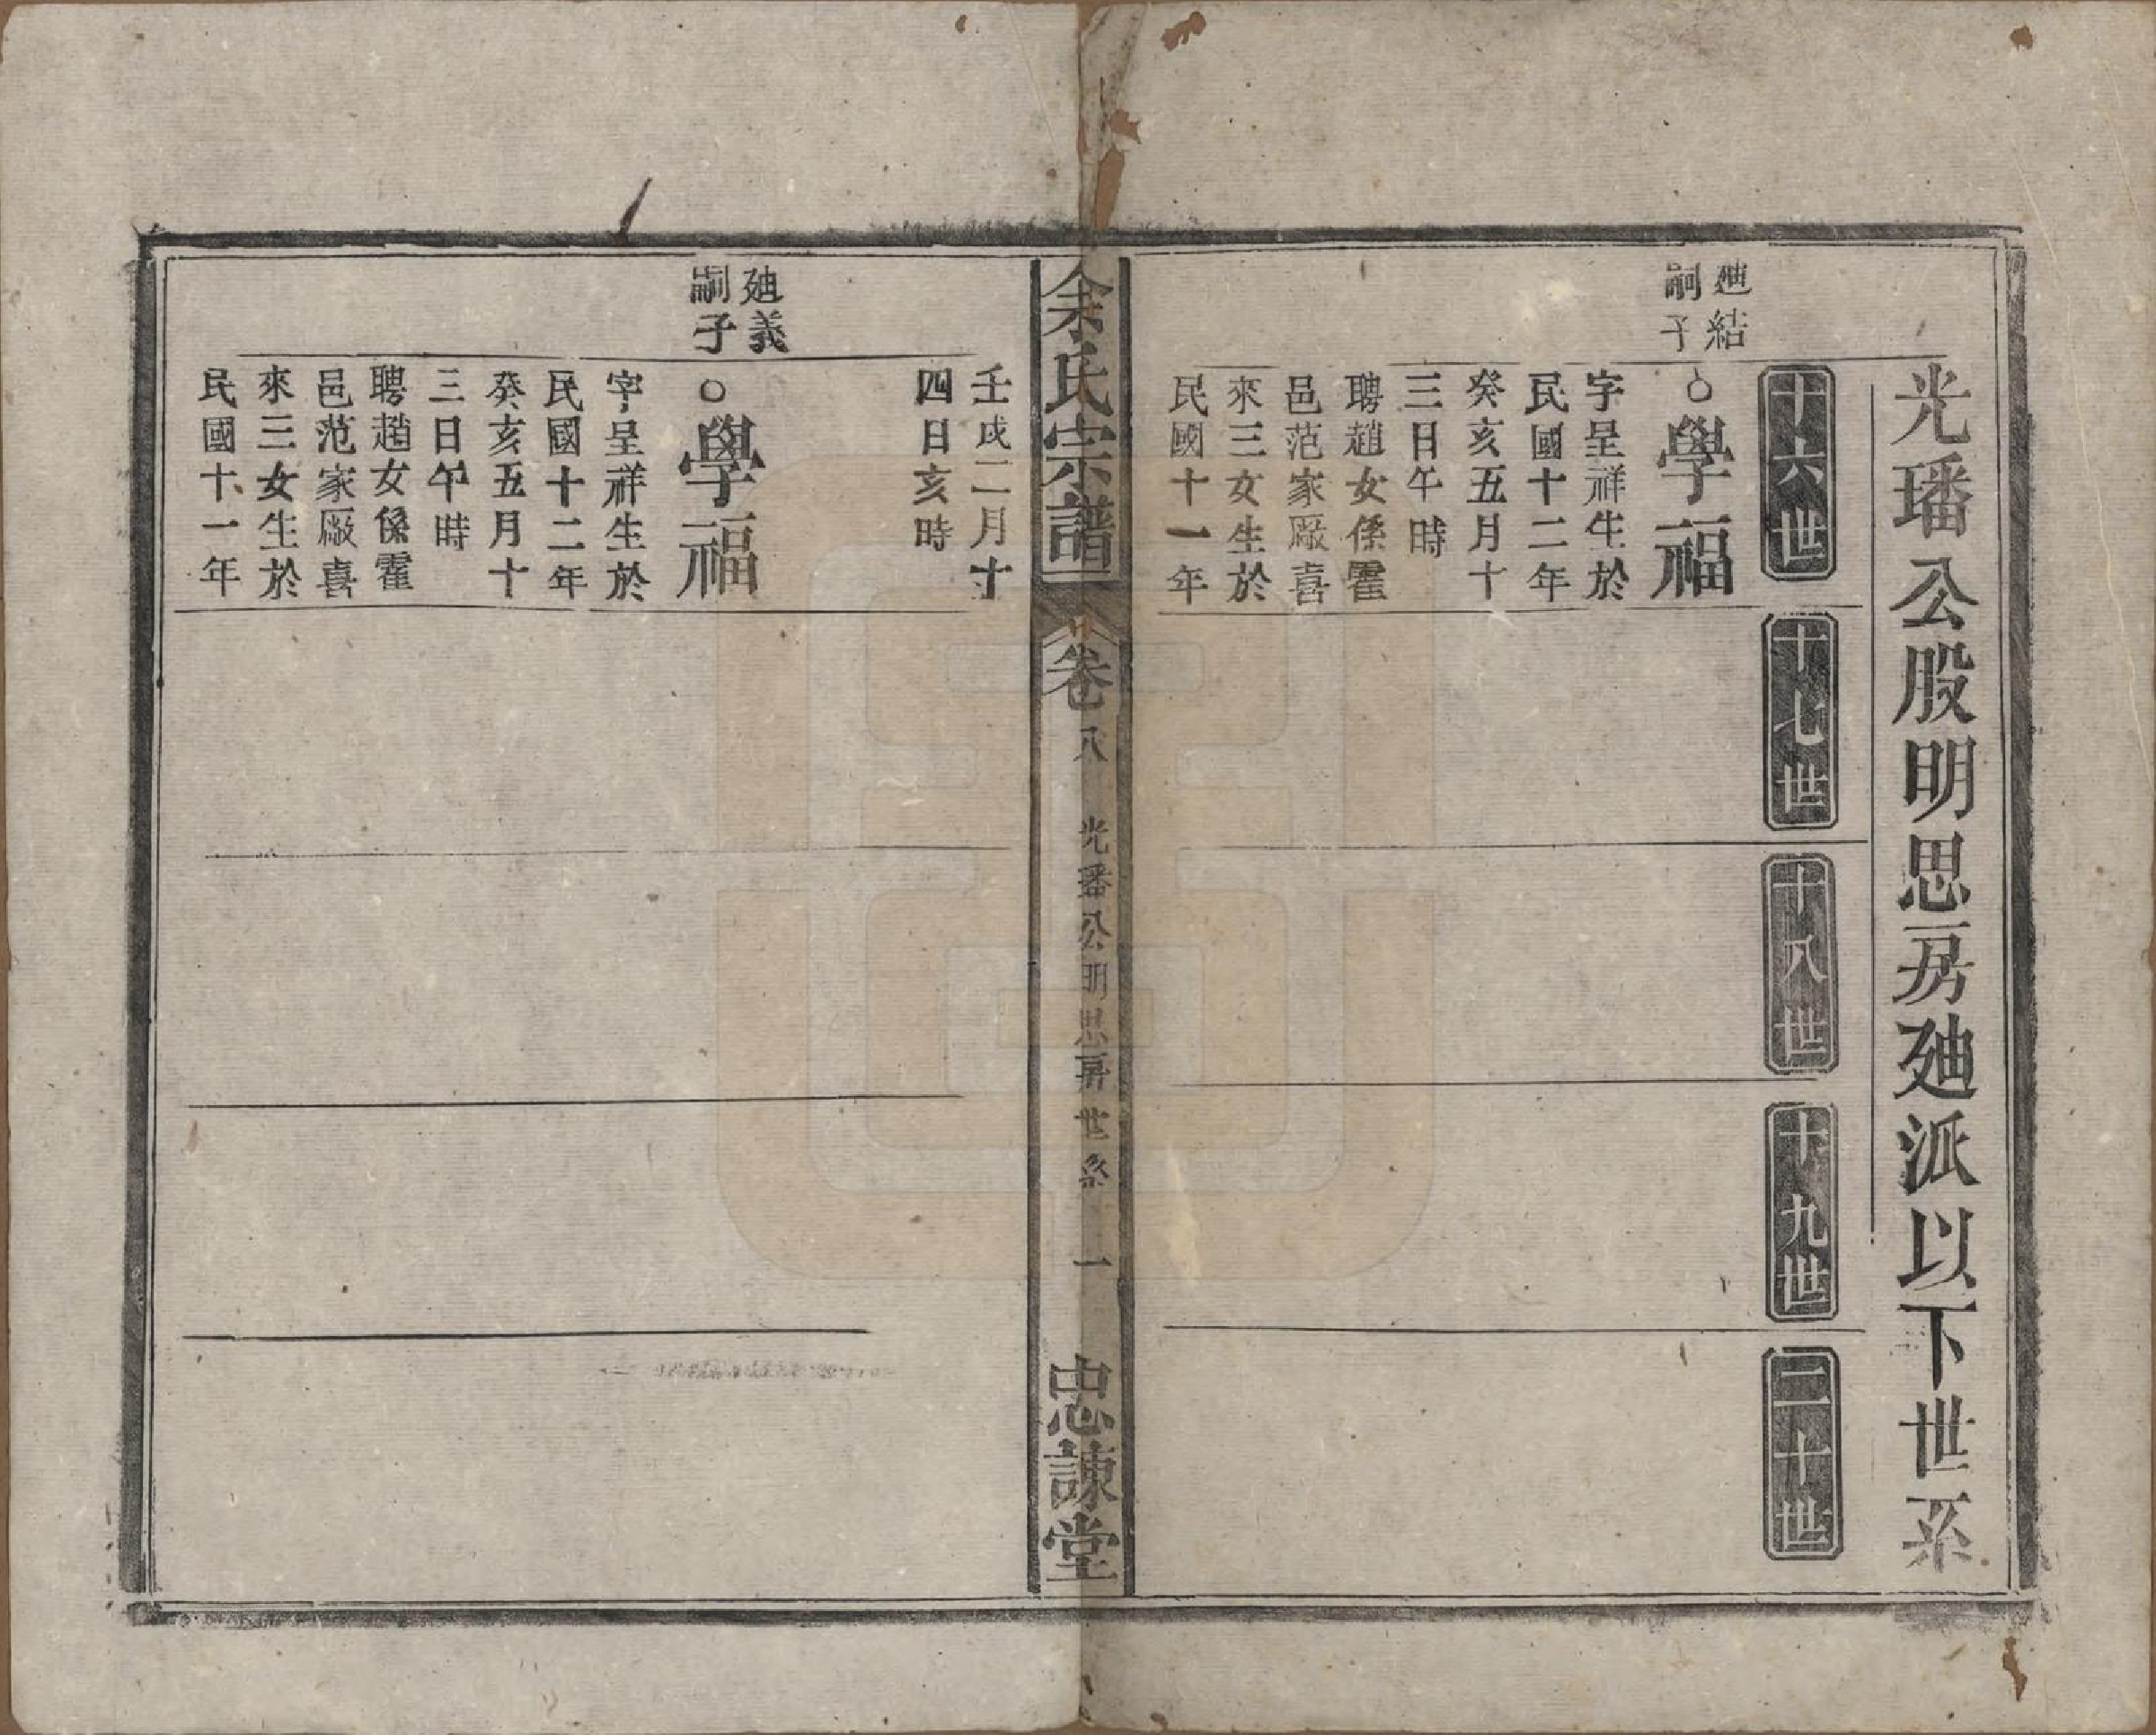 光璠公股明思房廸派以下世系
十六世
十七世
十八世
十九世
二十世
廸結
嗣子
○學福
字呈祥生於
民國十二年
癸亥五月十
三日午時
聘趙女係霍
邑范家厰喜
來三女生於
民國十一年
余氏宗譜
卷八
光璠公明思房世系
一
忠諫堂
壬戌二月十
四日亥時
廸義
嗣子
○學福
字呈祥生於
民國十二年
癸亥五月十
三日午時
聘趙女係霍
邑范家厰喜
來三女生於
民國十一年